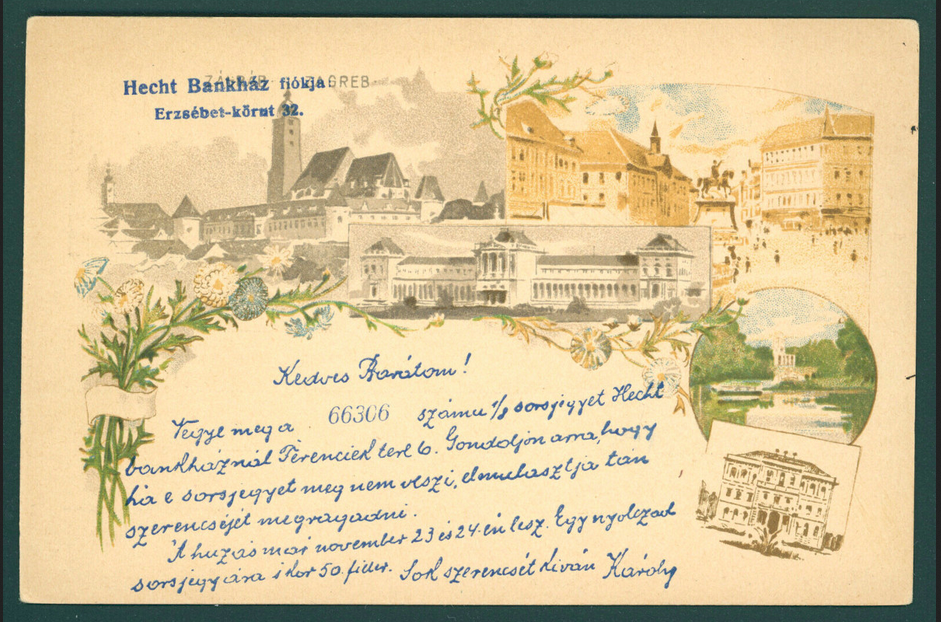 ZÁGRÁB ZAGREB
Hecht Bankház fiókja
Erzsébet-körut 32.
Kedves Barátom!
Vegye meg a 66306 számu 1/8 sorsjegyet Hecht
bankháznál Ferenciek tere 6. Gondoljon arra, hogy
ha e sorsjegyet meg nem veszi, elmulasztja tán
szerencséjét megragadni.
A huzás már november 23 és 24-én lesz. Egy nyolczad
sorsjegy ára 1 kor 50 fillér. Sok szerencsét kíván Károly